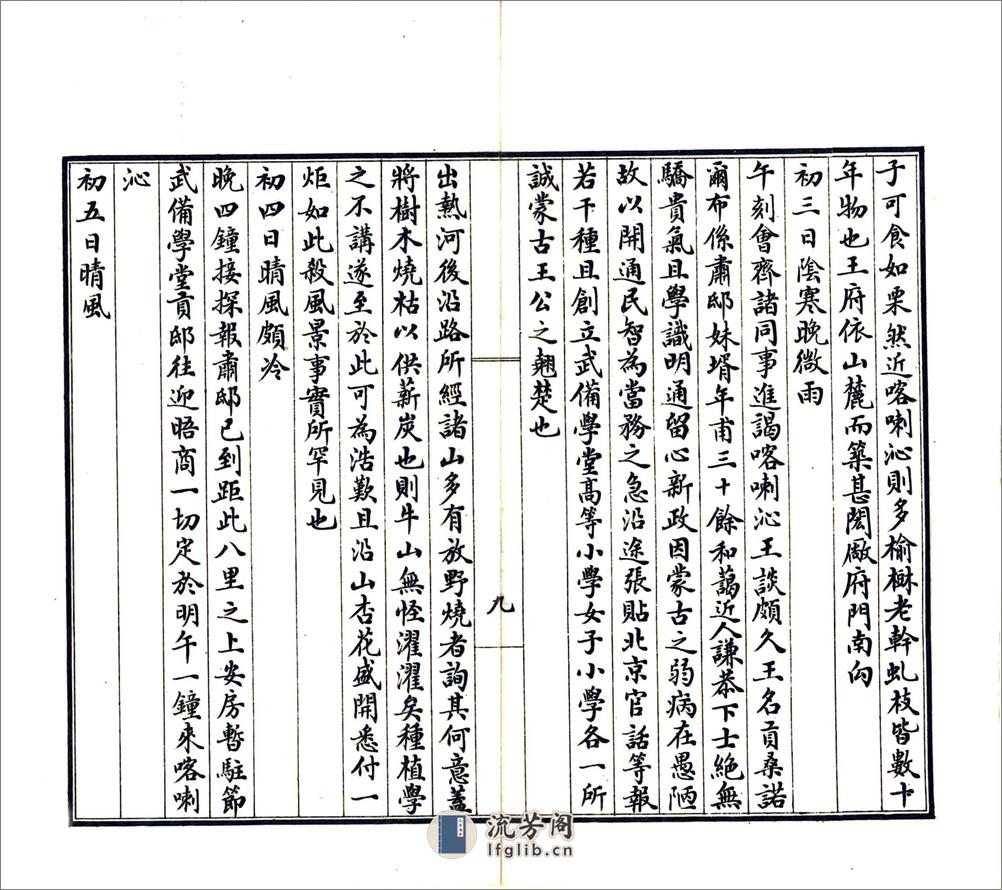 子可食如栗然近喀喇沁則多榆槲老幹虬枝皆數十
年物也王府依山麓而築甚閎厰府門南向
初三日陰寒晚微雨
午刻會齊諸同事進謁喀喇沁王談頗久王名貢桑諾
爾布係肅邸妹壻年甫三十餘和藹近人謙恭下士絶無
驕貴氣且學識明通留心新政因蒙古之弱病在愚陋
故以開通民智為當務之急沿途張貼北京官話等報
若干種且創立武備學堂高等小學女子小學各一所
誠蒙古王公之翹楚也
九
出熱河後沿路所經諸山多有放野燒者詢其何意蓋
將樹木燒枯以供薪炭也則牛山無怪濯濯矣種植學
之不講遂至於此可為浩歎且沿山杏花盛開悉付一
炬如此殺風景事實所罕見也
初四日晴風頗冷
晚四鐘接探報肅邸已到距此八里之上安房暫駐節
武備學堂貢邸往迎晤商一切定於明午一鐘來喀喇
沁
初五日晴風
流芳阁
lfglib.cn